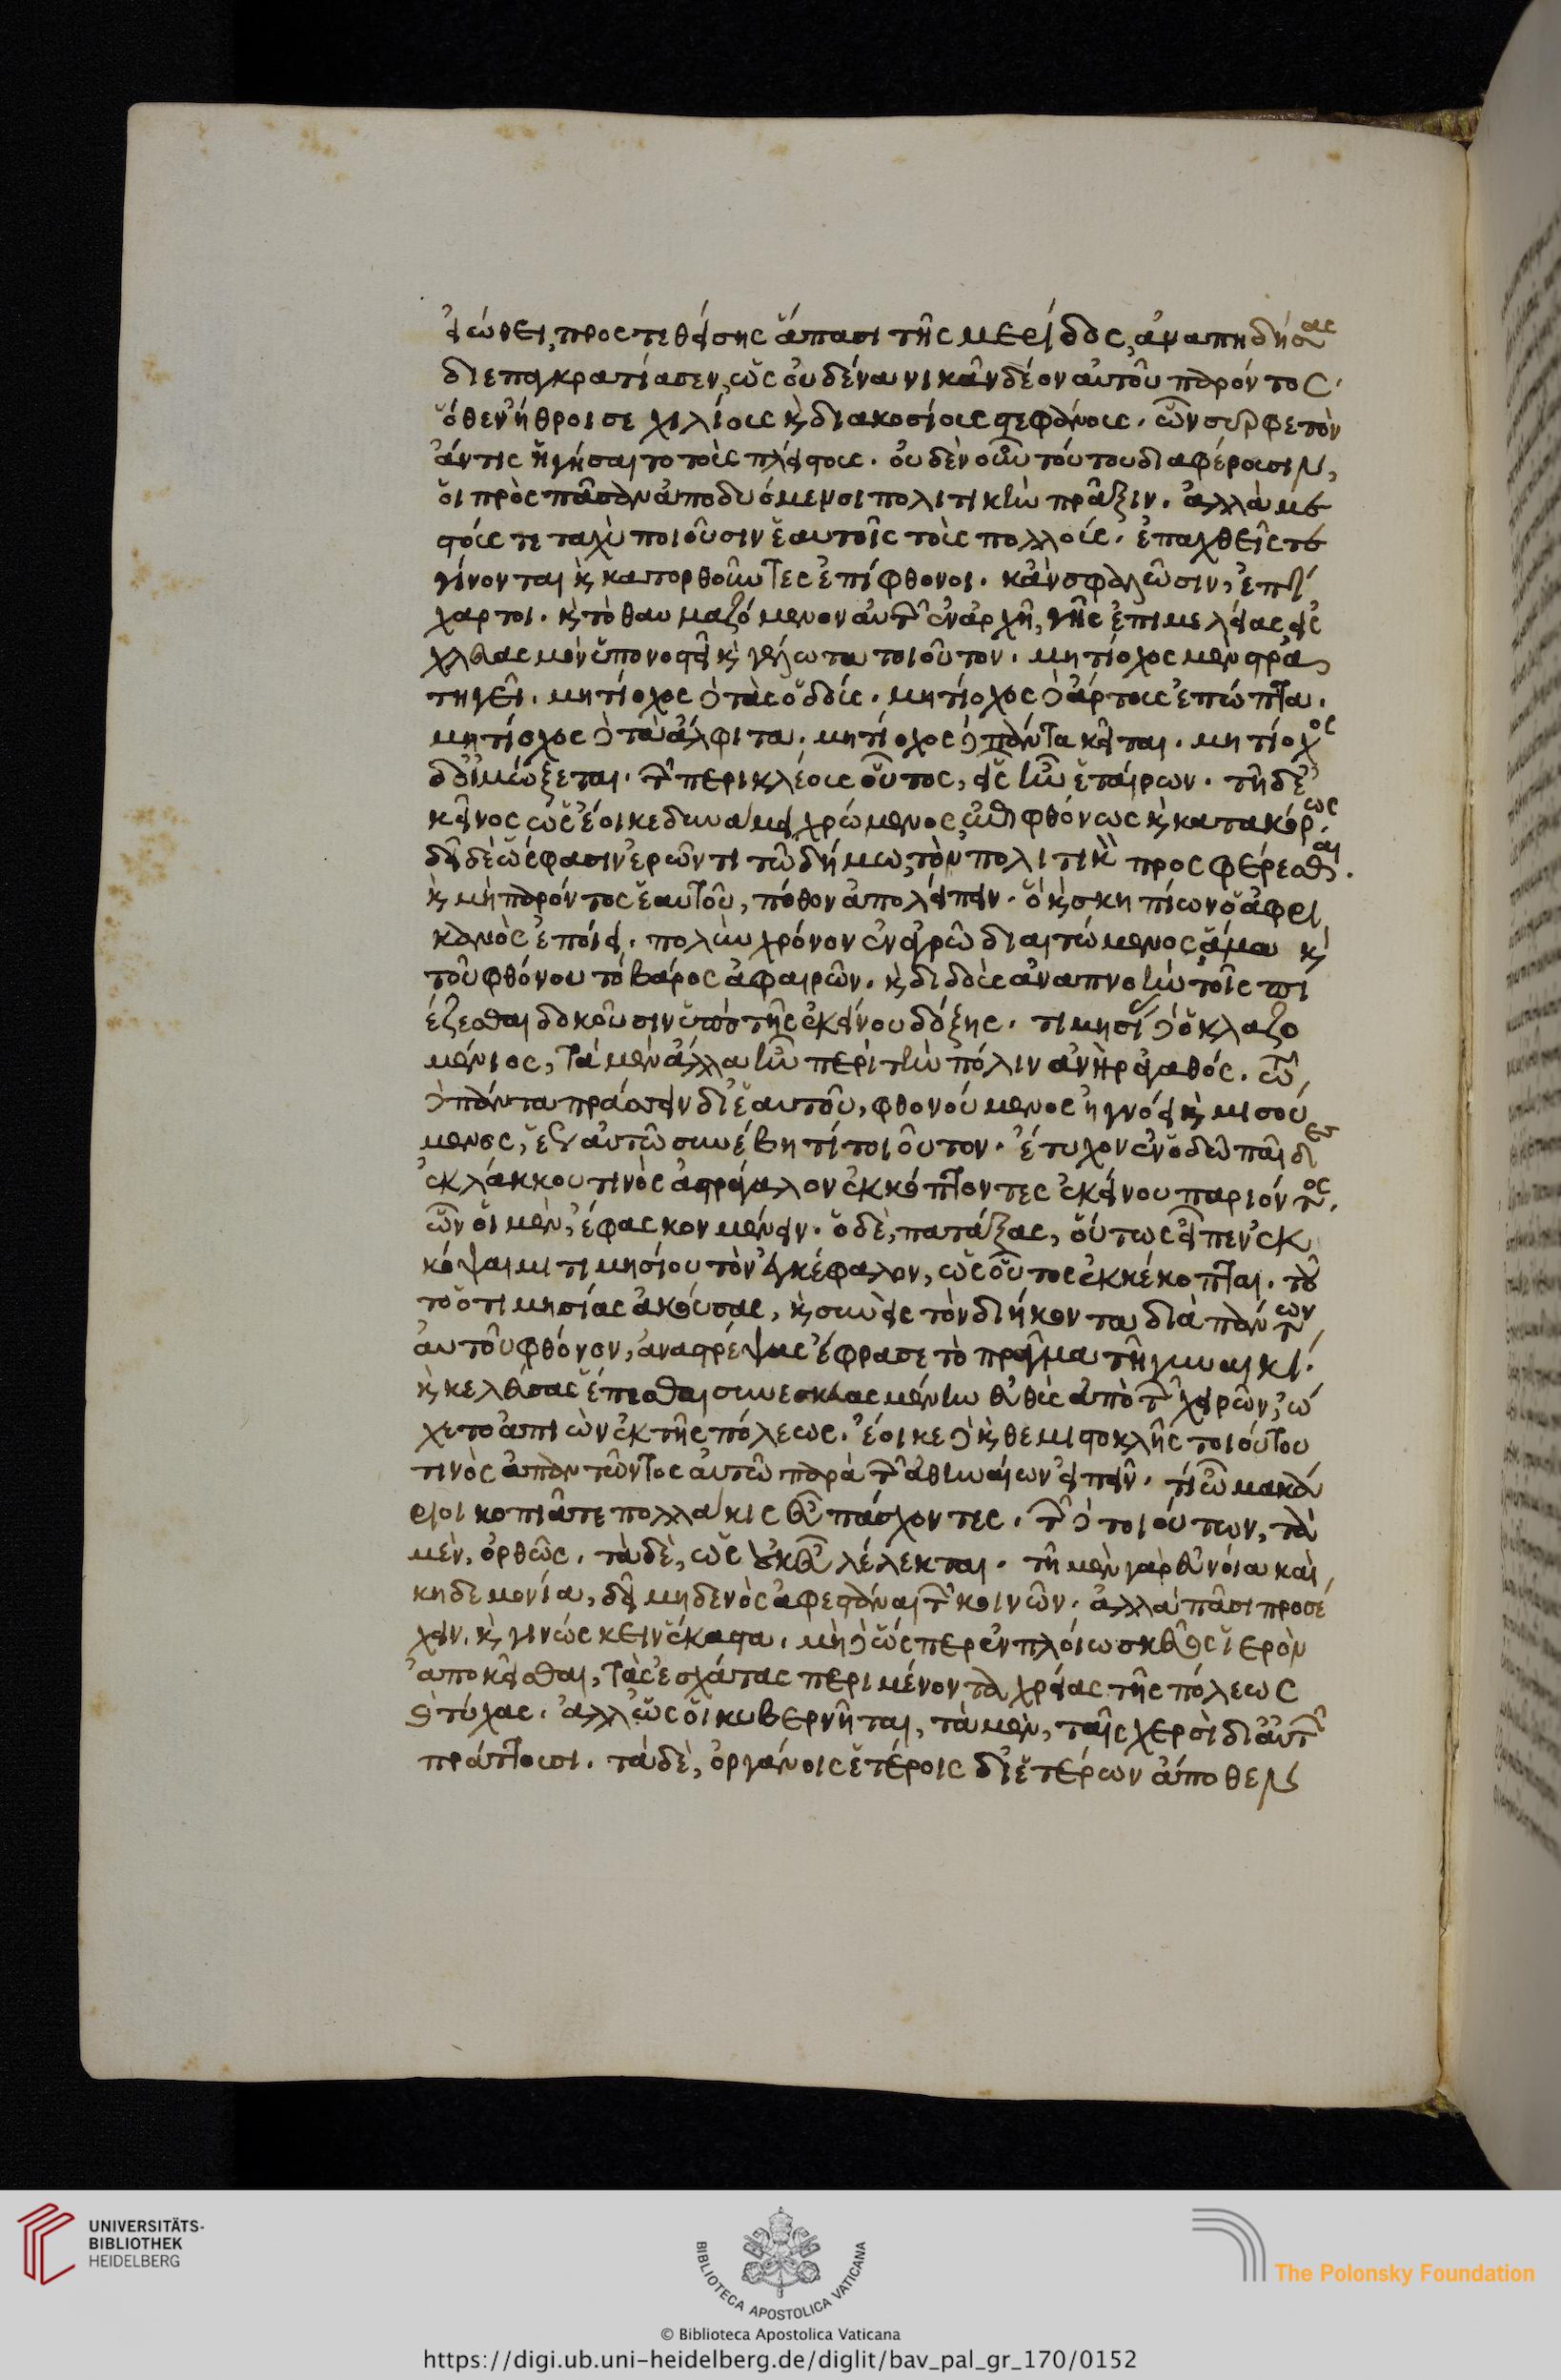 εἰώθει, προστεθείσης ἅπασι τῆς μερίδος, ἀναπηδήσας
διεπαγκρατίασεν, ὡς οὐδένα νικᾶν δέον αὐτοῦ παρόντος.
ὅθεν ἤθροισε χιλίους κ διακοσίους στεφάνους. ὧν συρφετὸν
ἄν τις ἡγήσαιτο τοὺς πλείστους. οὐδὲν οὖν τούτου διαφέρουσιν,
οἱ πρὸς πᾶσαν ἀποδυόμενοι πολιτικὴν πρᾶξιν. ἀλλὰ με
στούς τε ταχὺ ποιοῦσιν ἑαυτοῖς τοὺς πολλούς. ἐπαχθεῖς τε
γίνονται κ κατορθοῦντες ἐπίφθονοι. κἂν σφαλῶσιν, ἐπί
χαρτοι. κ τὸ θαυμαζόμενον αὐτῶν ἐν ἀρχῇ, τῆς ἐπιμελείας, εἰς
χλευασμὸν ὑπονοστεῖ κ γέλωτα τοιοῦτον. μητίοχος μὲν στρα
τηγεῖ. μητίοχος δὲ τὰς ὁδούς. μητίοχος δὲ ἄρτους ἐπώπτα.
μητίοχος δὲ τὰ ἄλφιτα. μητίοχος δὲ πάντα κεῖται. μητίοχος
δ οἰμώξεται. τῶν περικλέους οὗτος, εἷς ἦν ἑταίρων. τῇ δὲ ἐ
κεῖνος ὡς ἔοικε δυνάμει χρώμενος ἐπιφθόνως κ κατακόρως.
δεῖ δὲ ὥς φασιν ἐρῶντι τῷ δήμῳ, τὸν πολιτικὸν προσφέρεσθαι.
κ μὴ παρόντος ἑαυτοῦ, πόθον ἀπολείπειν. ὃ κ σκηπίων ὁ ἀφρι
κανὸς ἐποίει. πολὺν χρόνον ἐν ἀγρῷ διαιτώμενος ἅμα κ
τοῦ φθόνου τὸ βάρος ἀφαιρῶν. κ διδοὺς ἀναπνοὴν τοῖς πι
έζεσθαι δοκοῦσιν ὑπὸ τῆς ἐκείνου δόξης. τιμησίας δὲ ὁ κλαζο
μένιος, τὰ μὲν ἄλλα ἦν περὶ τὴν πόλιν ἀνὴρ ἀγαθός. τῷ
δὲ πάντα πράσσειν δι ἑαυτοῦ, φθονούμενος ἠγνόει κ μισού
μενος, ἕως αὐτῷ συνέβη τί τοιοῦτον. ἔτυχον ἐν ὁδῷ παῖδες
ἐκ λάκκου τινὸς ἀστράγαλον ἐκκόπτοντες ἐκείνου παριόντος.
ὧν οἱ μὲν, ἔφασκον μένειν. ὁ δὲ, πατάξας, οὕτως εἶπεν ἐκ
κόψαιμι τιμησίου τὸν ἐγκέφαλον, ὡς οὗτος ἐκκέκοπται. τοῦ
το ὁ τιμησίας ἀκούσας, κ συνεὶς τὸν διήκοντα διὰ πάντων
αὐτοῦ φθόνον, ἀναστρέψας ἔφρασε τὸ πρᾶγμα τῇ γυναικί.
κ κελεύσας ἕπεσθαι συνεσκευασμένην εὐθὺς ἀπὸ τῶν θυρῶν, ᾤ
χετο ἀπιὼν ἐκ τῆς πόλεως. ἔοικε δὲ κ θεμιστοκλῆς τοιούτου
τινὸς ἀπαντῶντος αὐτῷ παρὰ τῶν ἀθηναίων εἰπεῖν. τί ὦ μακά
ριοι κοπιᾶτε πολλάκις εὖ πάσχοντες. τῶν δὲ τοιούτων, τὰ
μὲν, ὀρθῶς. τὰ δὲ, ὡς οὐκ εὖ λέλεκται. τῇ μὲν γὰρ εὐνοίᾳ καὶ
κηδεμονίᾳ, δεῖ μηδενὸς ἀφεστάναι τῶν κοινῶν. ἀλλὰ πᾶσι προσέ
χειν. κ γινώσκειν ἕκαστα. μὴ δὲ ὥσπερ ἐν πλοίῳ σκεῦος ἱερὸν
ἀποκεῖσθαι, τὰς ἐσχάτας περιμένοντα χρείας τῆς πόλεως
κ τύχας. ἀλλ ὡς οἱ κυβερνῆται, τὰ μὲν, ταῖς χερσὶ δι αὐτῶν
πράττουσι. τὰ δὲ, ὀργάνοις ἑτέροις δι ἑτέρων ἄποθεν
UNIVERSITÄTS-
BIBLIOTHEK
HEIDELBERG
BIBLIOTECA APOSTOLICA VATICANA
The Polonsky Foundation
© Biblioteca Apostolica Vaticana
https://digi.ub.uni-heidelberg.de/diglit/bav_pal_gr_170/0152